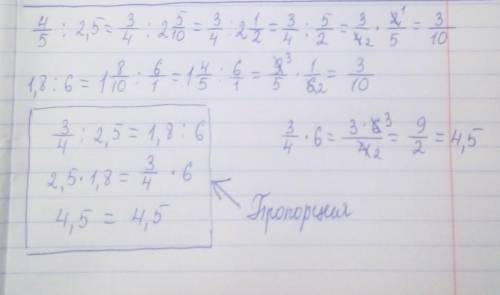 4/5 : 2,5 = 3/4 : 2 5/10 = 3/4 : 2 1/2 = 3/4 : 5/2 = 3/4₂ · 2¹/5 = 3/10
1,8 : 6 = 1 8/10 : 6/1 = 1 4/5 : 6/1 = 9³/5 · 1/6₂ = 3/10
3/4 : 2,5 = 1,8 : 6
2,5 · 1,8 = 3/4 · 6
4,5 = 4,5
3/4 · 6 = 3 · 6³/4₂ = 9/2 = 4,5
Пропорция